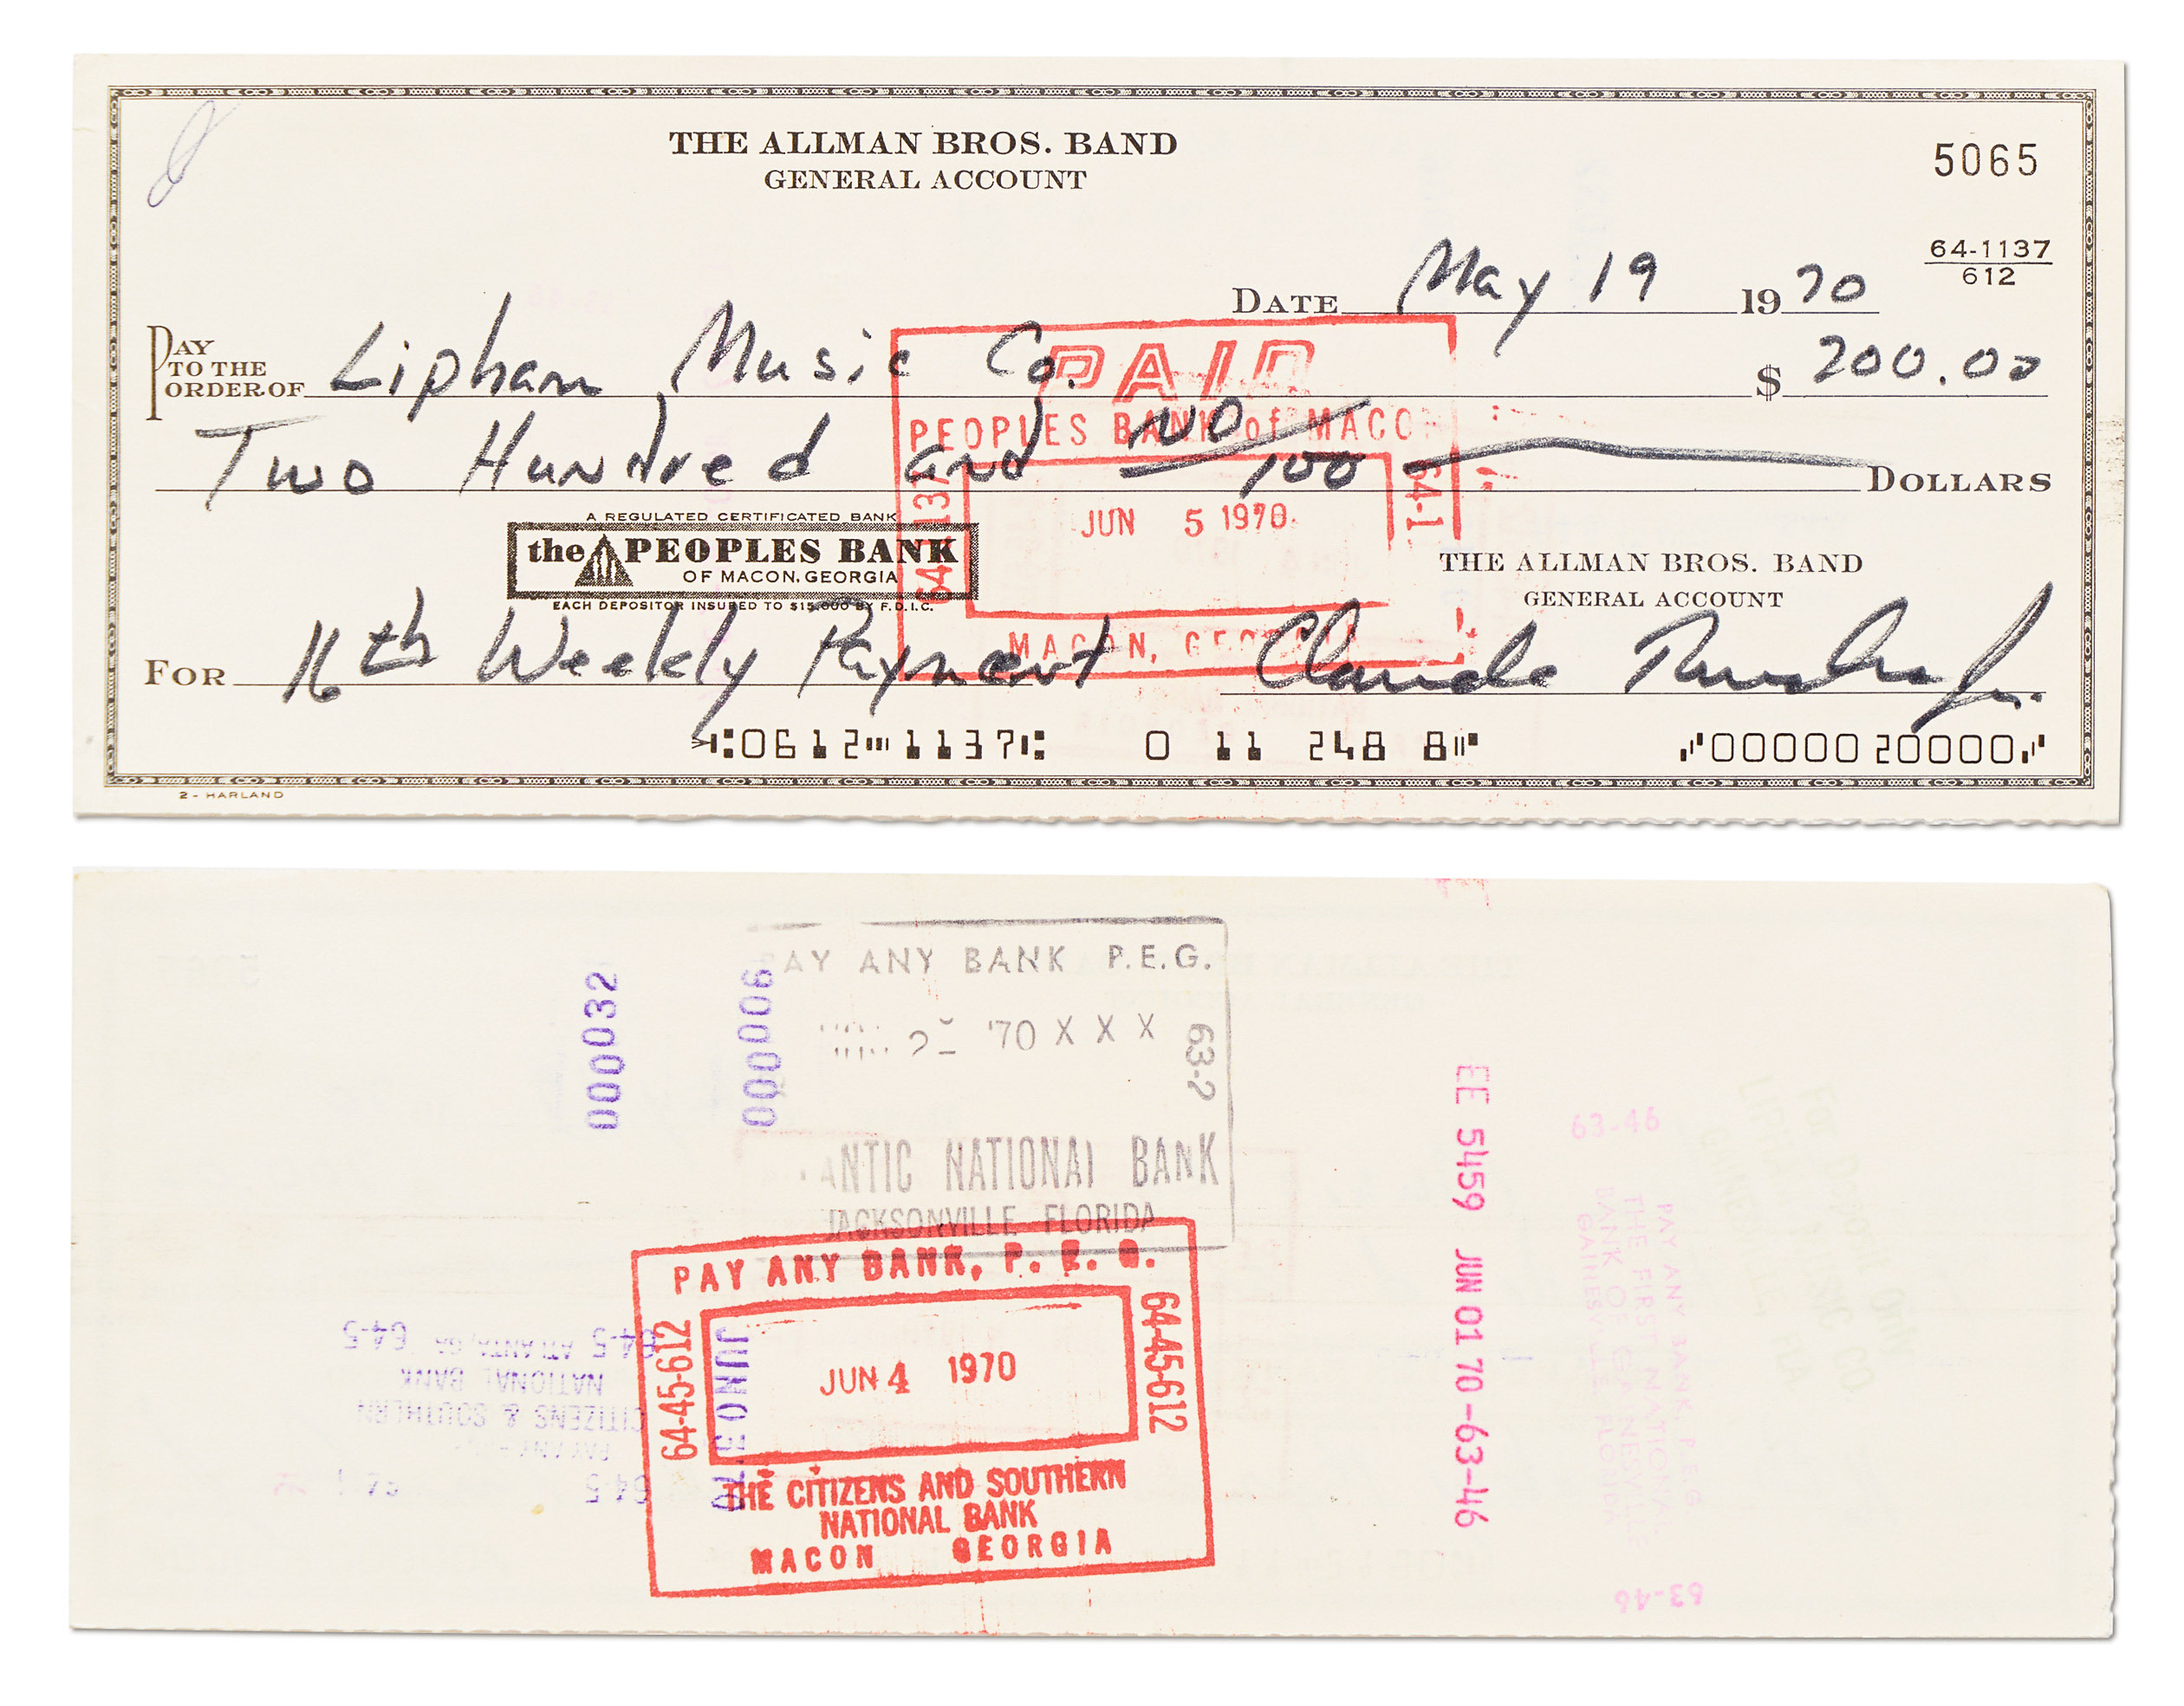 THE ALLMAN BROS. BAND
GENERAL ACCOUNT
5065
64-1137
612
DATE May 19 1970
PAY TO THE ORDER OF Lipham Music Co. $ 200.00
Two Hundred and NO/100 DOLLARS
PAID
PEOPLES BANK of MACO
64-1137
64-1
JUN 5 1970
MACON, GEORGIA
A REGULATED CERTIFICATED BANK
the PEOPLES BANK
OF MACON, GEORGIA
EACH DEPOSITOR INSURED TO $15,000 BY F.D.I.C.
THE ALLMAN BROS. BAND
GENERAL ACCOUNT
FOR 16th Weekly Payment Claude
0612 1137 0 11 248 8 00000 20000
2 - HARLAND
000032
90000
PAY ANY BANK P.E.G.
'70 X X X
63-2
ANTIC NATIONAL BANK
JACKSONVILLE FLORIDA
PAY ANY BANK, P. E. G.
64-45-612
JUN 4 1970
64-45-612
THE CITIZENS AND SOUTHERN
NATIONAL BANK
MACON GEORGIA
JUN 03 70
64-5
CITIZENS & SOUTHERN
NATIONAL BANK
64-5 ATLANTA, GA 64-5
EE 5459 JUN 01 70 -63-46
63-46
PAY ANY BANK, P.E.G.
THE FIRST NATIONAL
BANK OF GAINESVILLE
GAINESVILLE FLORIDA
63-46